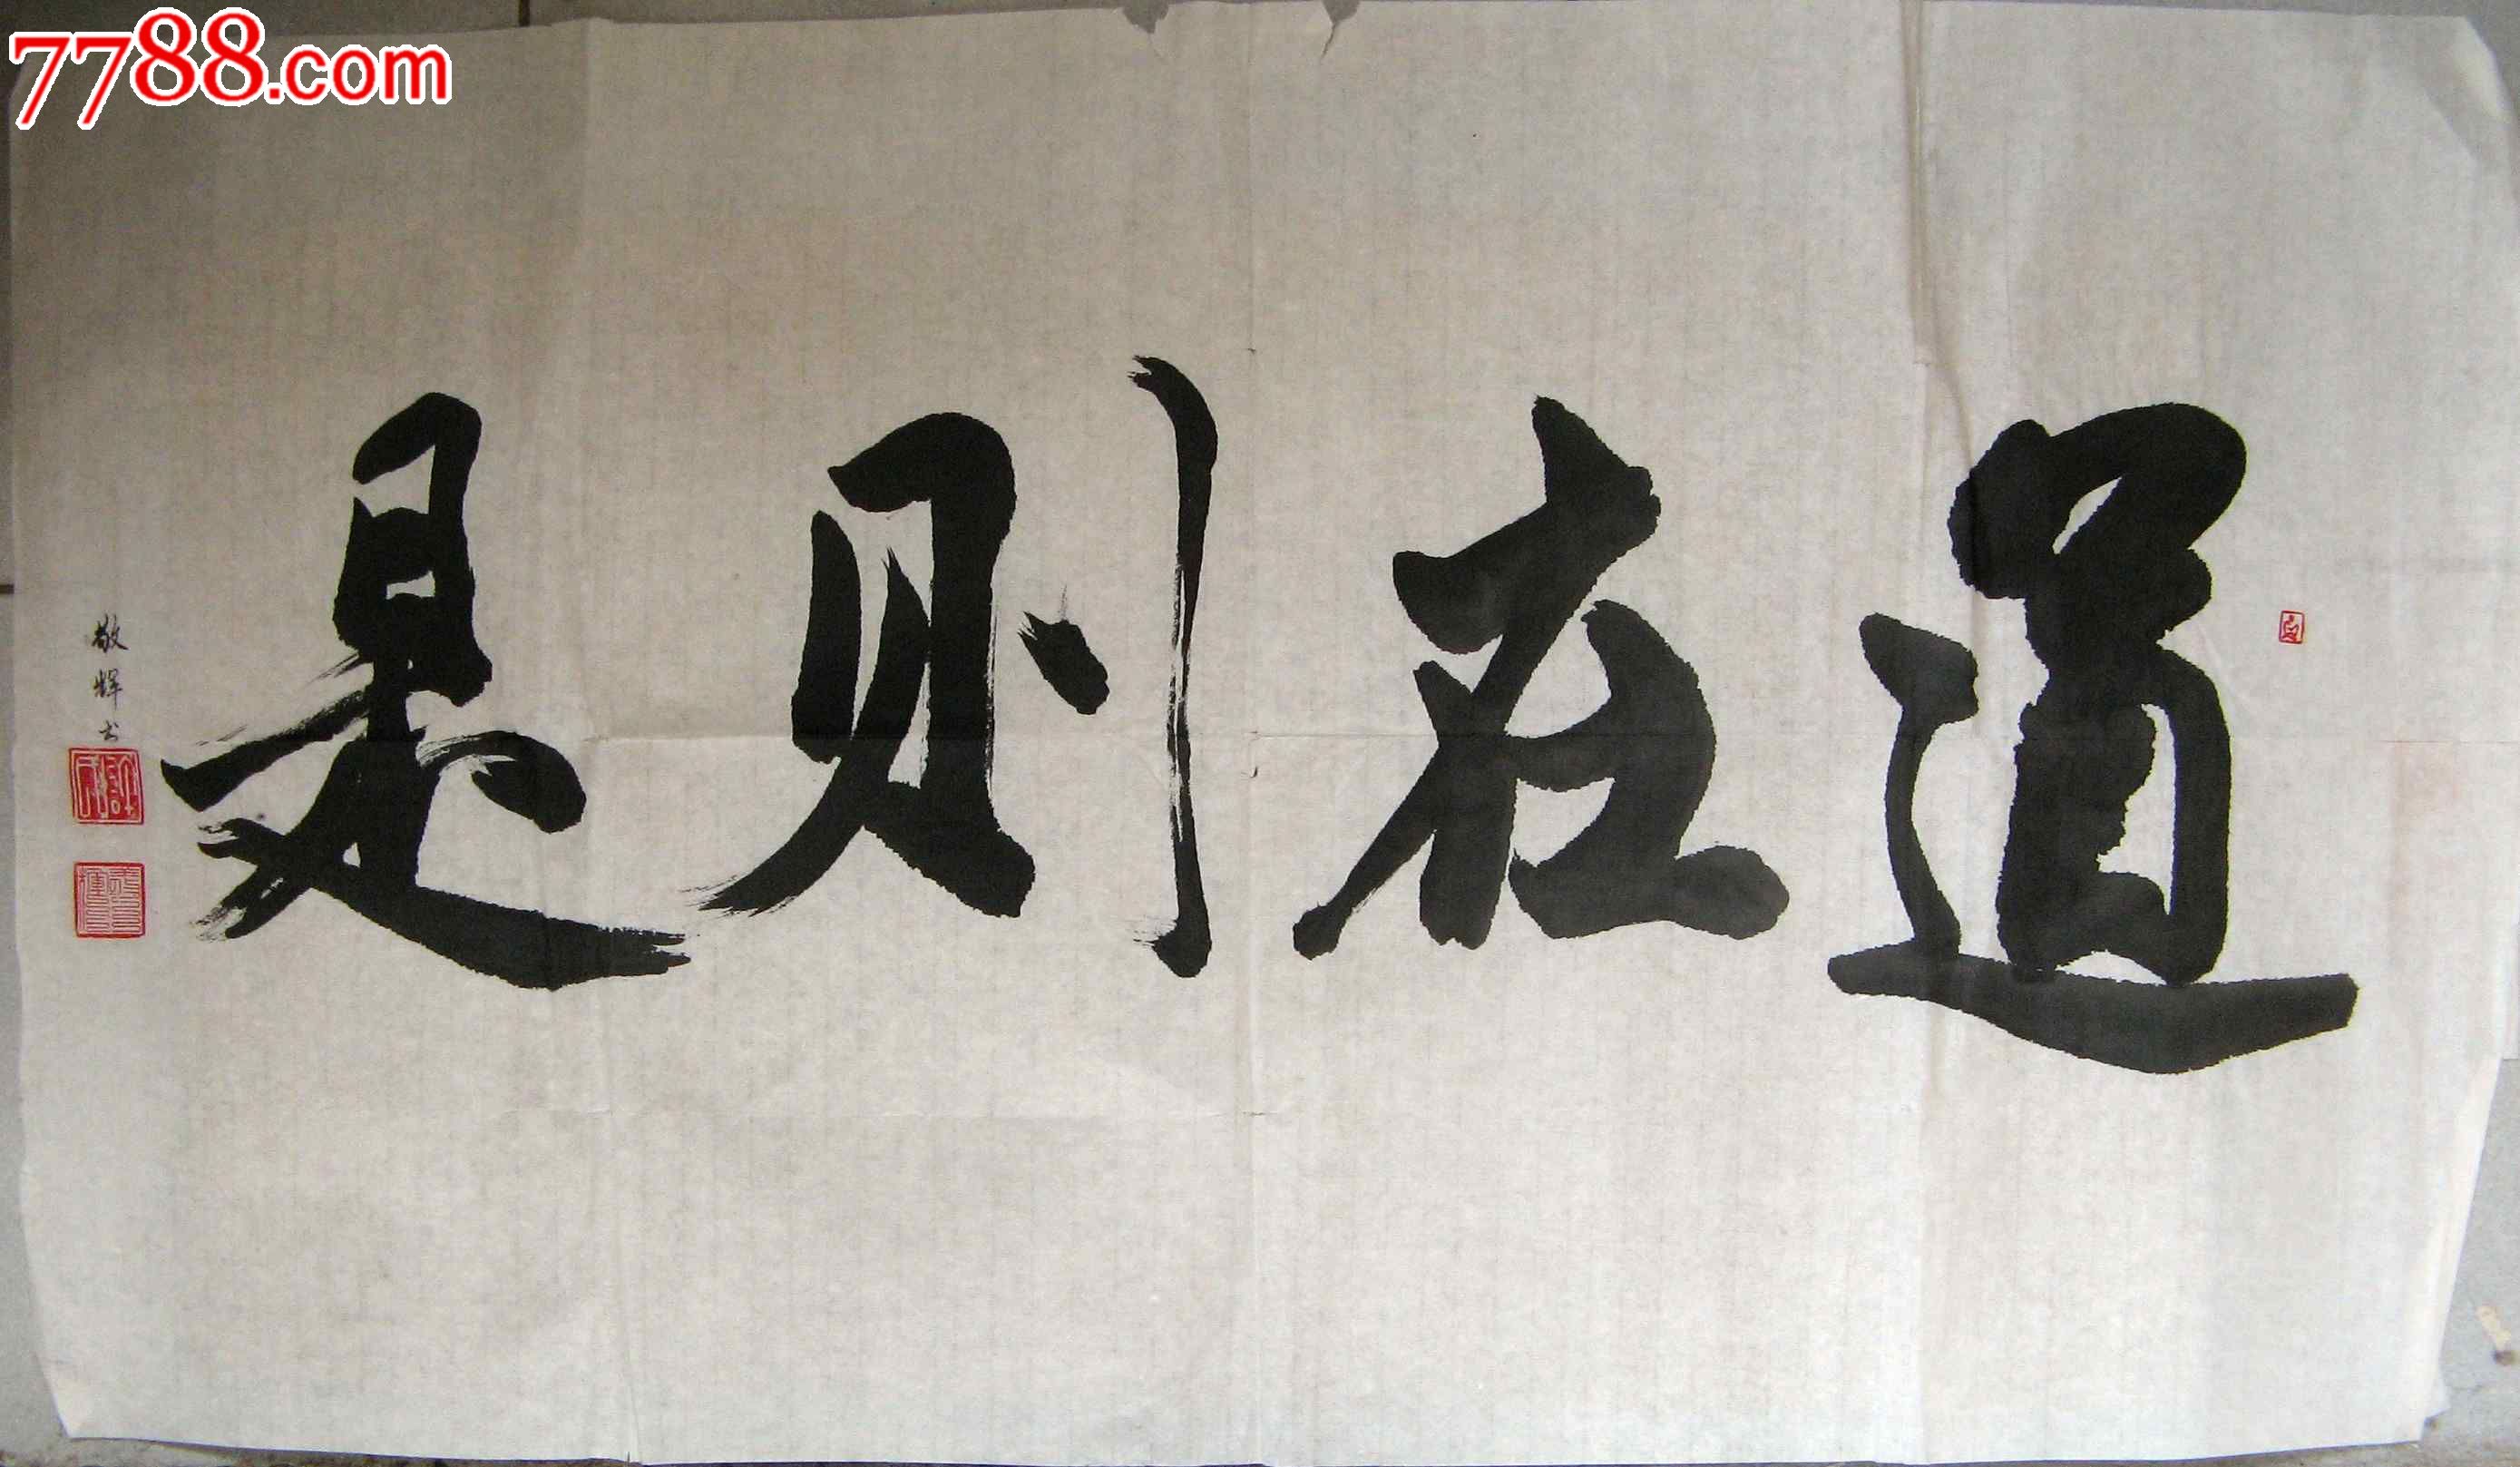 7788.com
道在则是
敬辉书